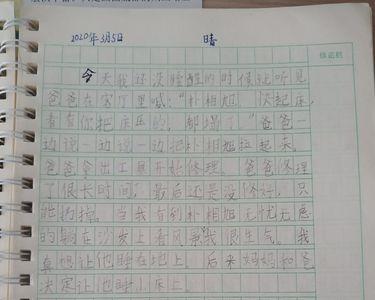 2020年3月5日 晴
今天我还没睡醒的时候就听见
爸爸在客厅里喊："朴相旭，快起床，
看看你把床压的，都塌了。"爸爸一
边说一边说一边把朴相旭拉起来。
爸爸拿出工具开始修理。爸爸修理
了很长时间，最后还是没修好，只
能扔掉。当我看到朴相旭无忧无虑
的躺在沙发上看风景，我很生气。我
真想让他睡在地上。后来妈妈和爸
决定让他睡小床上。